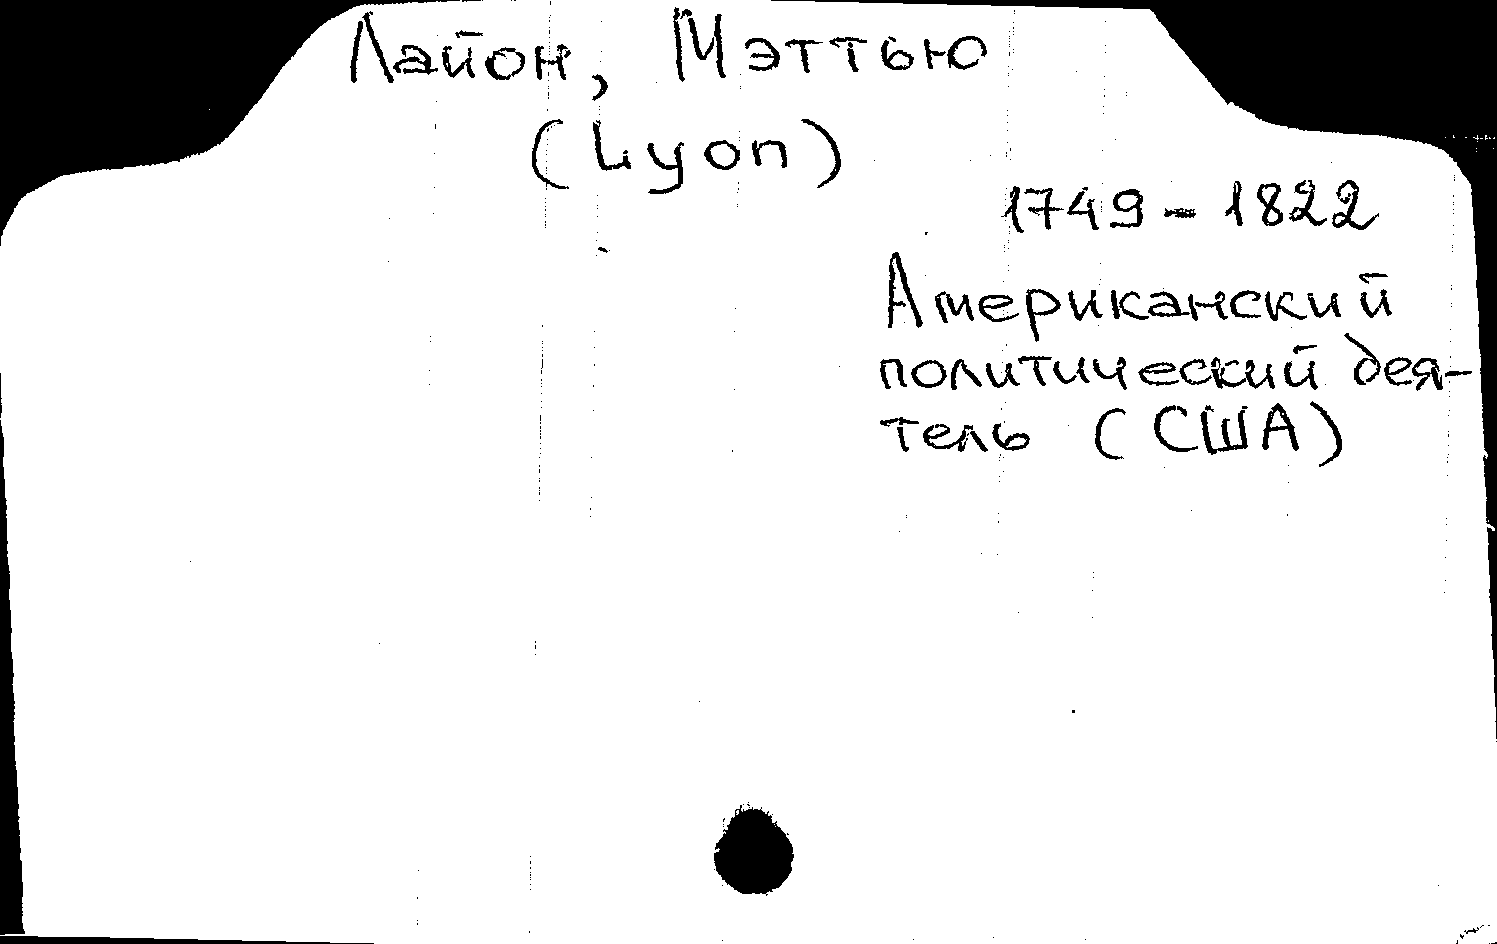 Лайон, Мэттью
(Lyon)
1749 - 1822
Американский
политический дея-
тель (США)